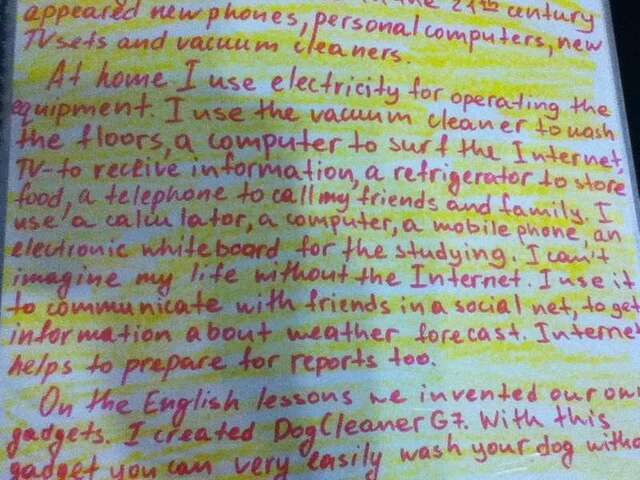 the 21th century
appeared new phones, personal computers, new
TV sets and vacuum cleaners.
At home I use electricity for operating the
equipment. I use the vacuum cleaner to wash
the floors, a computer to surf the Internet,
TV-to recive information, a refrigerator to store
food, a telephone to call my friends and family. I
use, a calculator, a computer, a mobile phone, an
electronic whiteboard for the studying. I can't
imagine my life without the Internet. I use it
to communicate with friends in a social net, to get
information about weather forecast. Internet
helps to prepare for reports too.
On the English lessons we invented our own
gadgets. I created DogCleaner G7. With this
gadget you can very easily wash your dog